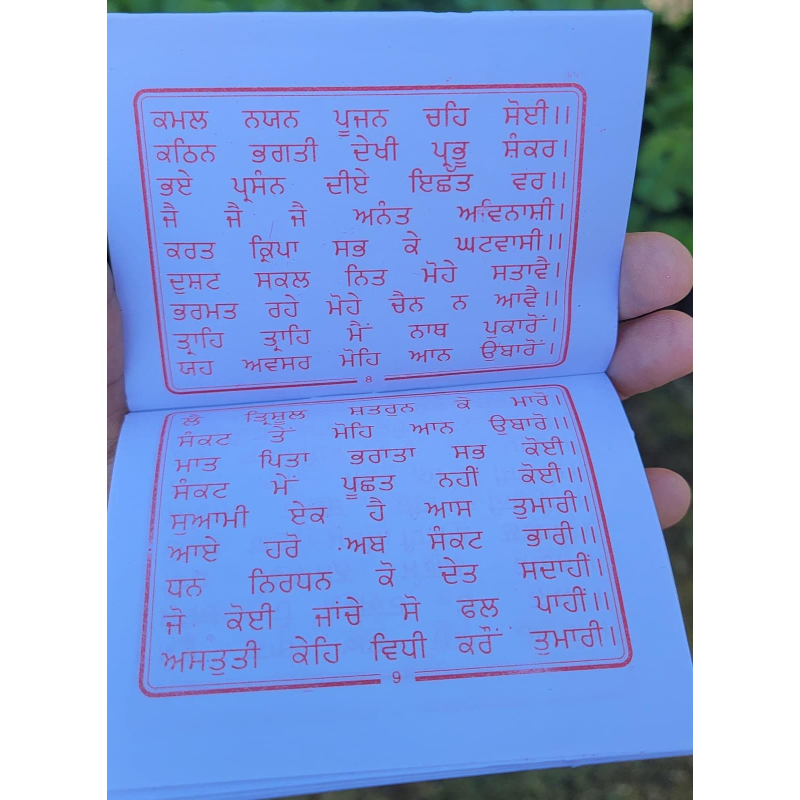 ਕਮਲ ਨਯਨ ਪੂਜਨ ਚਹਿ ਸੋਈ।।
ਕਠਿਨ ਭਗਤੀ ਦੇਖੀ ਪ੍ਰਭੂ ਸ਼ੰਕਰ।
ਭਏ ਪ੍ਰਸੰਨ ਦੀਏ ਇਛੱਤ ਵਰ।।
ਜੈ ਜੈ ਜੈ ਅਨੰਤ ਅਵਿਨਾਸ਼ੀ।
ਕਰਤ ਕ੍ਰਿਪਾ ਸਭ ਕੇ ਘਟਵਾਸੀ।।
ਦੁਸ਼ਟ ਸਕਲ ਨਿਤ ਮੋਹੇ ਸਤਾਵੈ।
ਭਰਮਤ ਰਹੇ ਮੋਹੇ ਚੈਨ ਨ ਆਵੈ।।
ਤ੍ਰਾਹਿ ਤ੍ਰਾਹਿ ਮੈਂ ਨਾਥ ਪੁਕਾਰੋਂ।
ਯਹ ਅਵਸਰ ਮੋਹਿ ਆਨ ਉਂਬਾਰੋਂ।
8
ਲੈ ਤ੍ਰਿਸ਼ੂਲ ਸ਼ਤਰੁਨ ਕੋ ਮਾਰੋ।
ਸੰਕਟ ਤੋਂ ਮੋਹਿ ਆਨ ਉਬਾਰੋ।।
ਮਾਤ ਪਿਤਾ ਭਰਾਤਾ ਸਭ ਕੋਈ।
ਸੰਕਟ ਮੇਂ ਪੂਛਤ ਨਹੀਂ ਕੋਈ।।
ਸੁਆਮੀ ਏਕ ਹੈ ਆਸ ਤੁਮਾਰੀ।
ਆਏ ਹਰੋ ਅਬ ਸੰਕਟ ਭਾਰੀ।।
ਧਨ ਨਿਰਧਨ ਕੋ ਦੇਤ ਸਦਾਹੀਂ।
ਜੋ ਕੋਈ ਜਾਂਚੇ ਸੋ ਫਲ ਪਾਹੀਂ।।
ਅਸਤੁਤੀ ਕੇਹਿ ਵਿਧੀ ਕਰੌਂ ਤੁਮਾਰੀ।
9